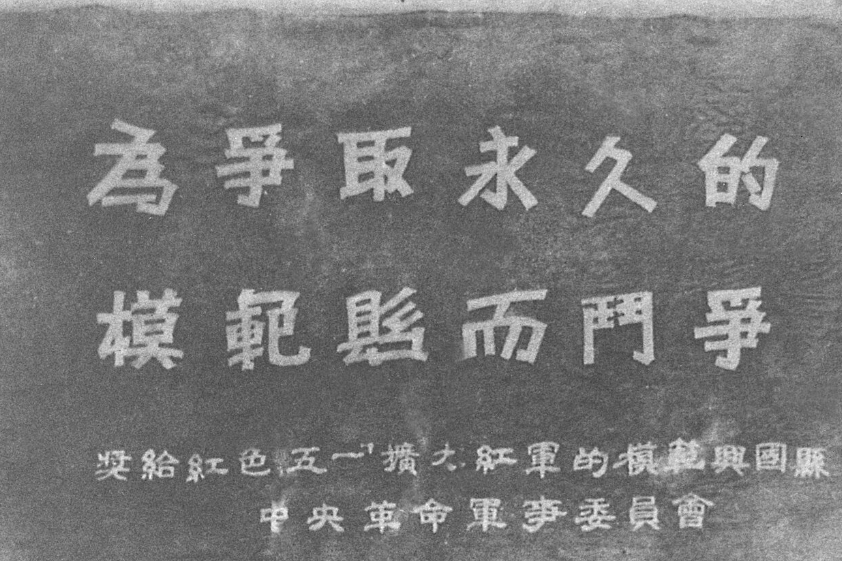 為爭取永久的
模範縣而鬥爭
奬給紅色五一擴大紅軍的模範興國縣
中央革命軍事委員會